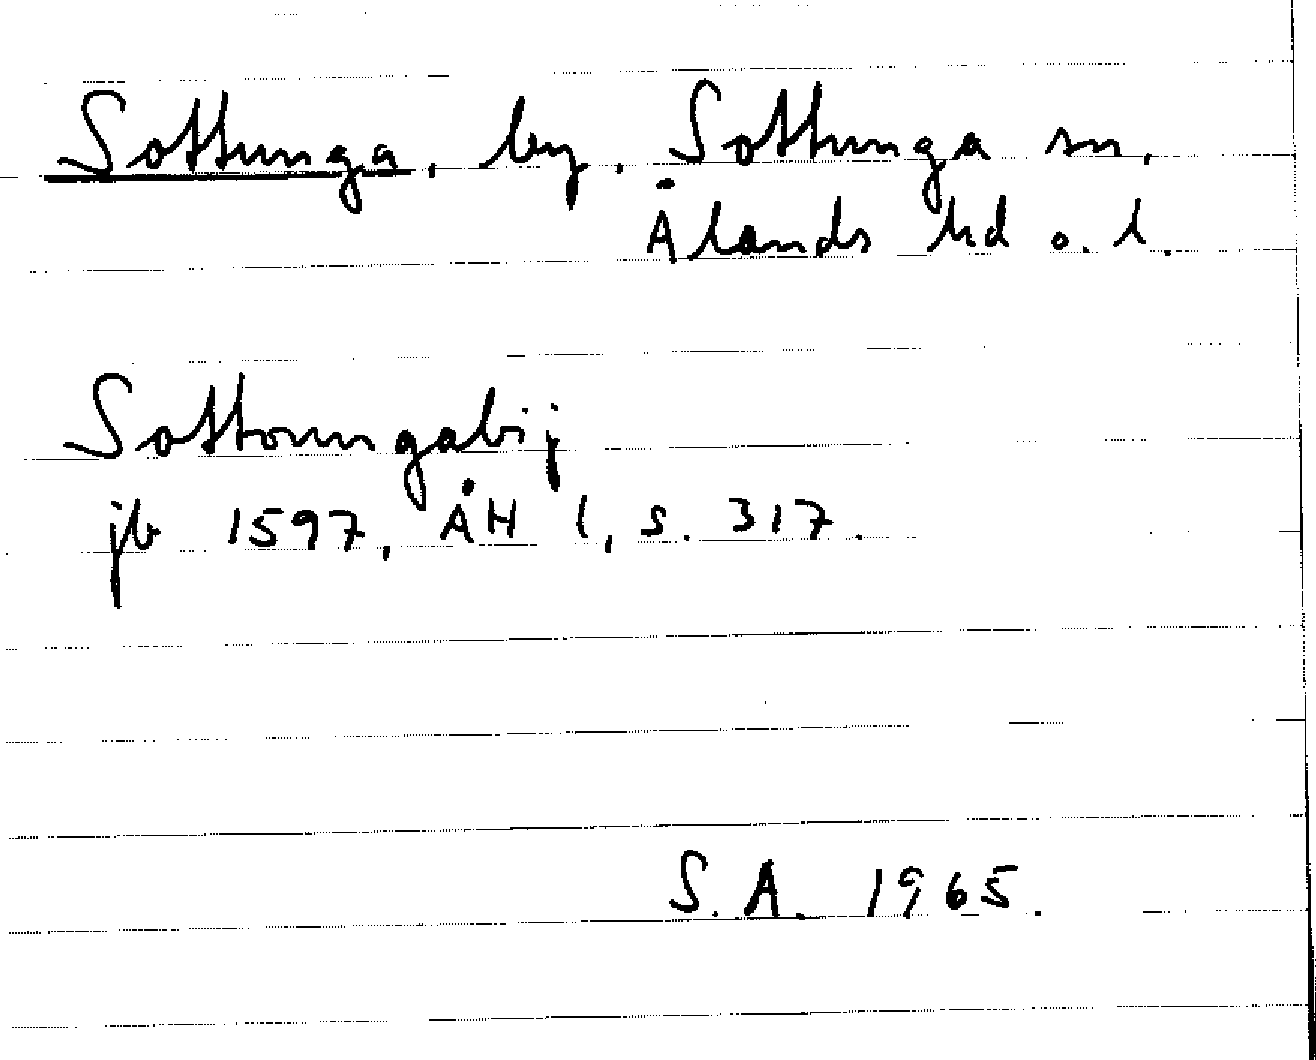 Sottunga, by, Sottunga sn,
Ålands hd o. l.
Sottoungabij
jb 1597, ÅH 1, s. 317.
S.A. 1965.